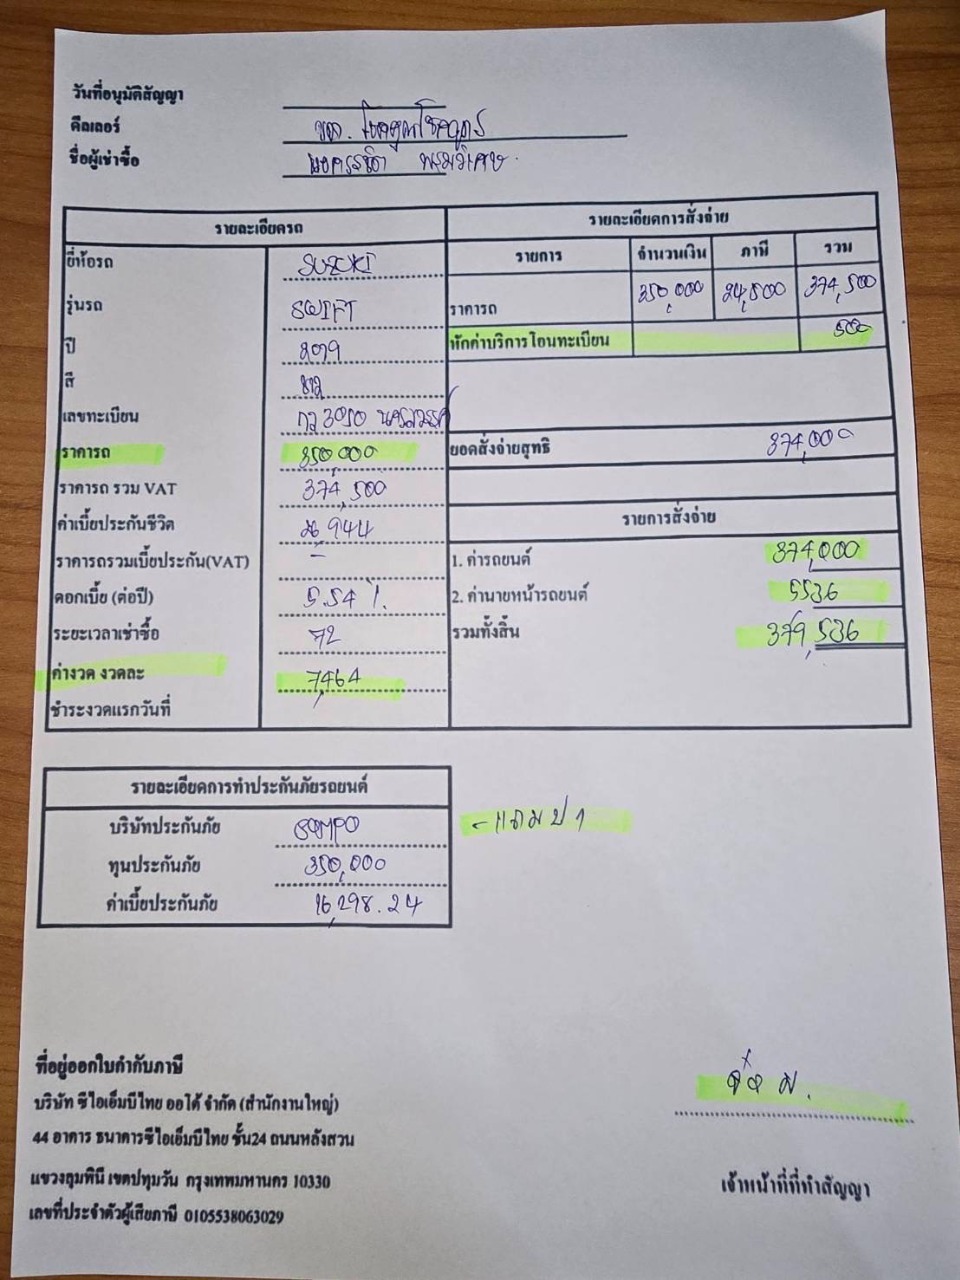 วันที่อนุมัติสัญญา
ดีลเลอร์ หจก.
ชื่อผู้เช่าซื้อ
รายละเอียดรถ
ยี่ห้อรถ SUZUKI
รุ่นรถ SWIFT
ปี 2019
สี ขาว
เลขทะเบียน
ราคารถ 350,000
ราคารถ รวม VAT 374,500
ค่าเบี้ยประกันชีวิต
ราคารถรวมเบี้ยประกัน(VAT) -
ดอกเบี้ย (ต่อปี) 5.54 %
ระยะเวลาเช่าซื้อ 72
ค่างวด งวดละ 7,464
ชำระงวดแรกวันที่
รายละเอียดการสั่งจ่าย
รายการ จำนวนเงิน ภาษี รวม
ราคารถ 350,000 24,500 374,500
หักค่าบริการโอนทะเบียน 500
ยอดสั่งจ่ายสุทธิ 374,000
รายการสั่งจ่าย
1. ค่ารถยนต์ 374,000
2. ค่านายหน้ารถยนต์ 5536
รวมทั้งสิ้น 379,536
รายละเอียดการทำประกันภัยรถยนต์
บริษัทประกันภัย SOMPO
ทุนประกันภัย 350,000
ค่าเบี้ยประกันภัย 16,298.24
- แถมป 1
ที่อยู่ออกใบกำกับภาษี
บริษัท ซีไอเอ็มบีไทย ออโต้ จำกัด (สำนักงานใหญ่)
44 อาคาร ธนาคารซีไอเอ็มบีไทย ชั้น24 ถนนหลังสวน
แขวงลุมพินี เขตปทุมวัน กรุงเทพมหานคร 10330
เลขที่ประจำตัวผู้เสียภาษี 0105538063029
เจ้าหน้าที่ที่ทำสัญญา